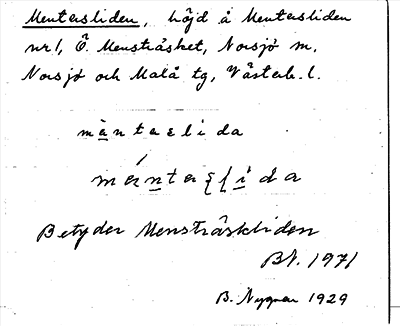 Mentersliden, höjd å Mentersliden
nr 1, Ö. Mensträsket, Norsjö sn.
Norsjö och Malå tg, Västerb. l.
mäntaslida
Betyder Mensträskliden
BN. 1971
B. Nygren 1929